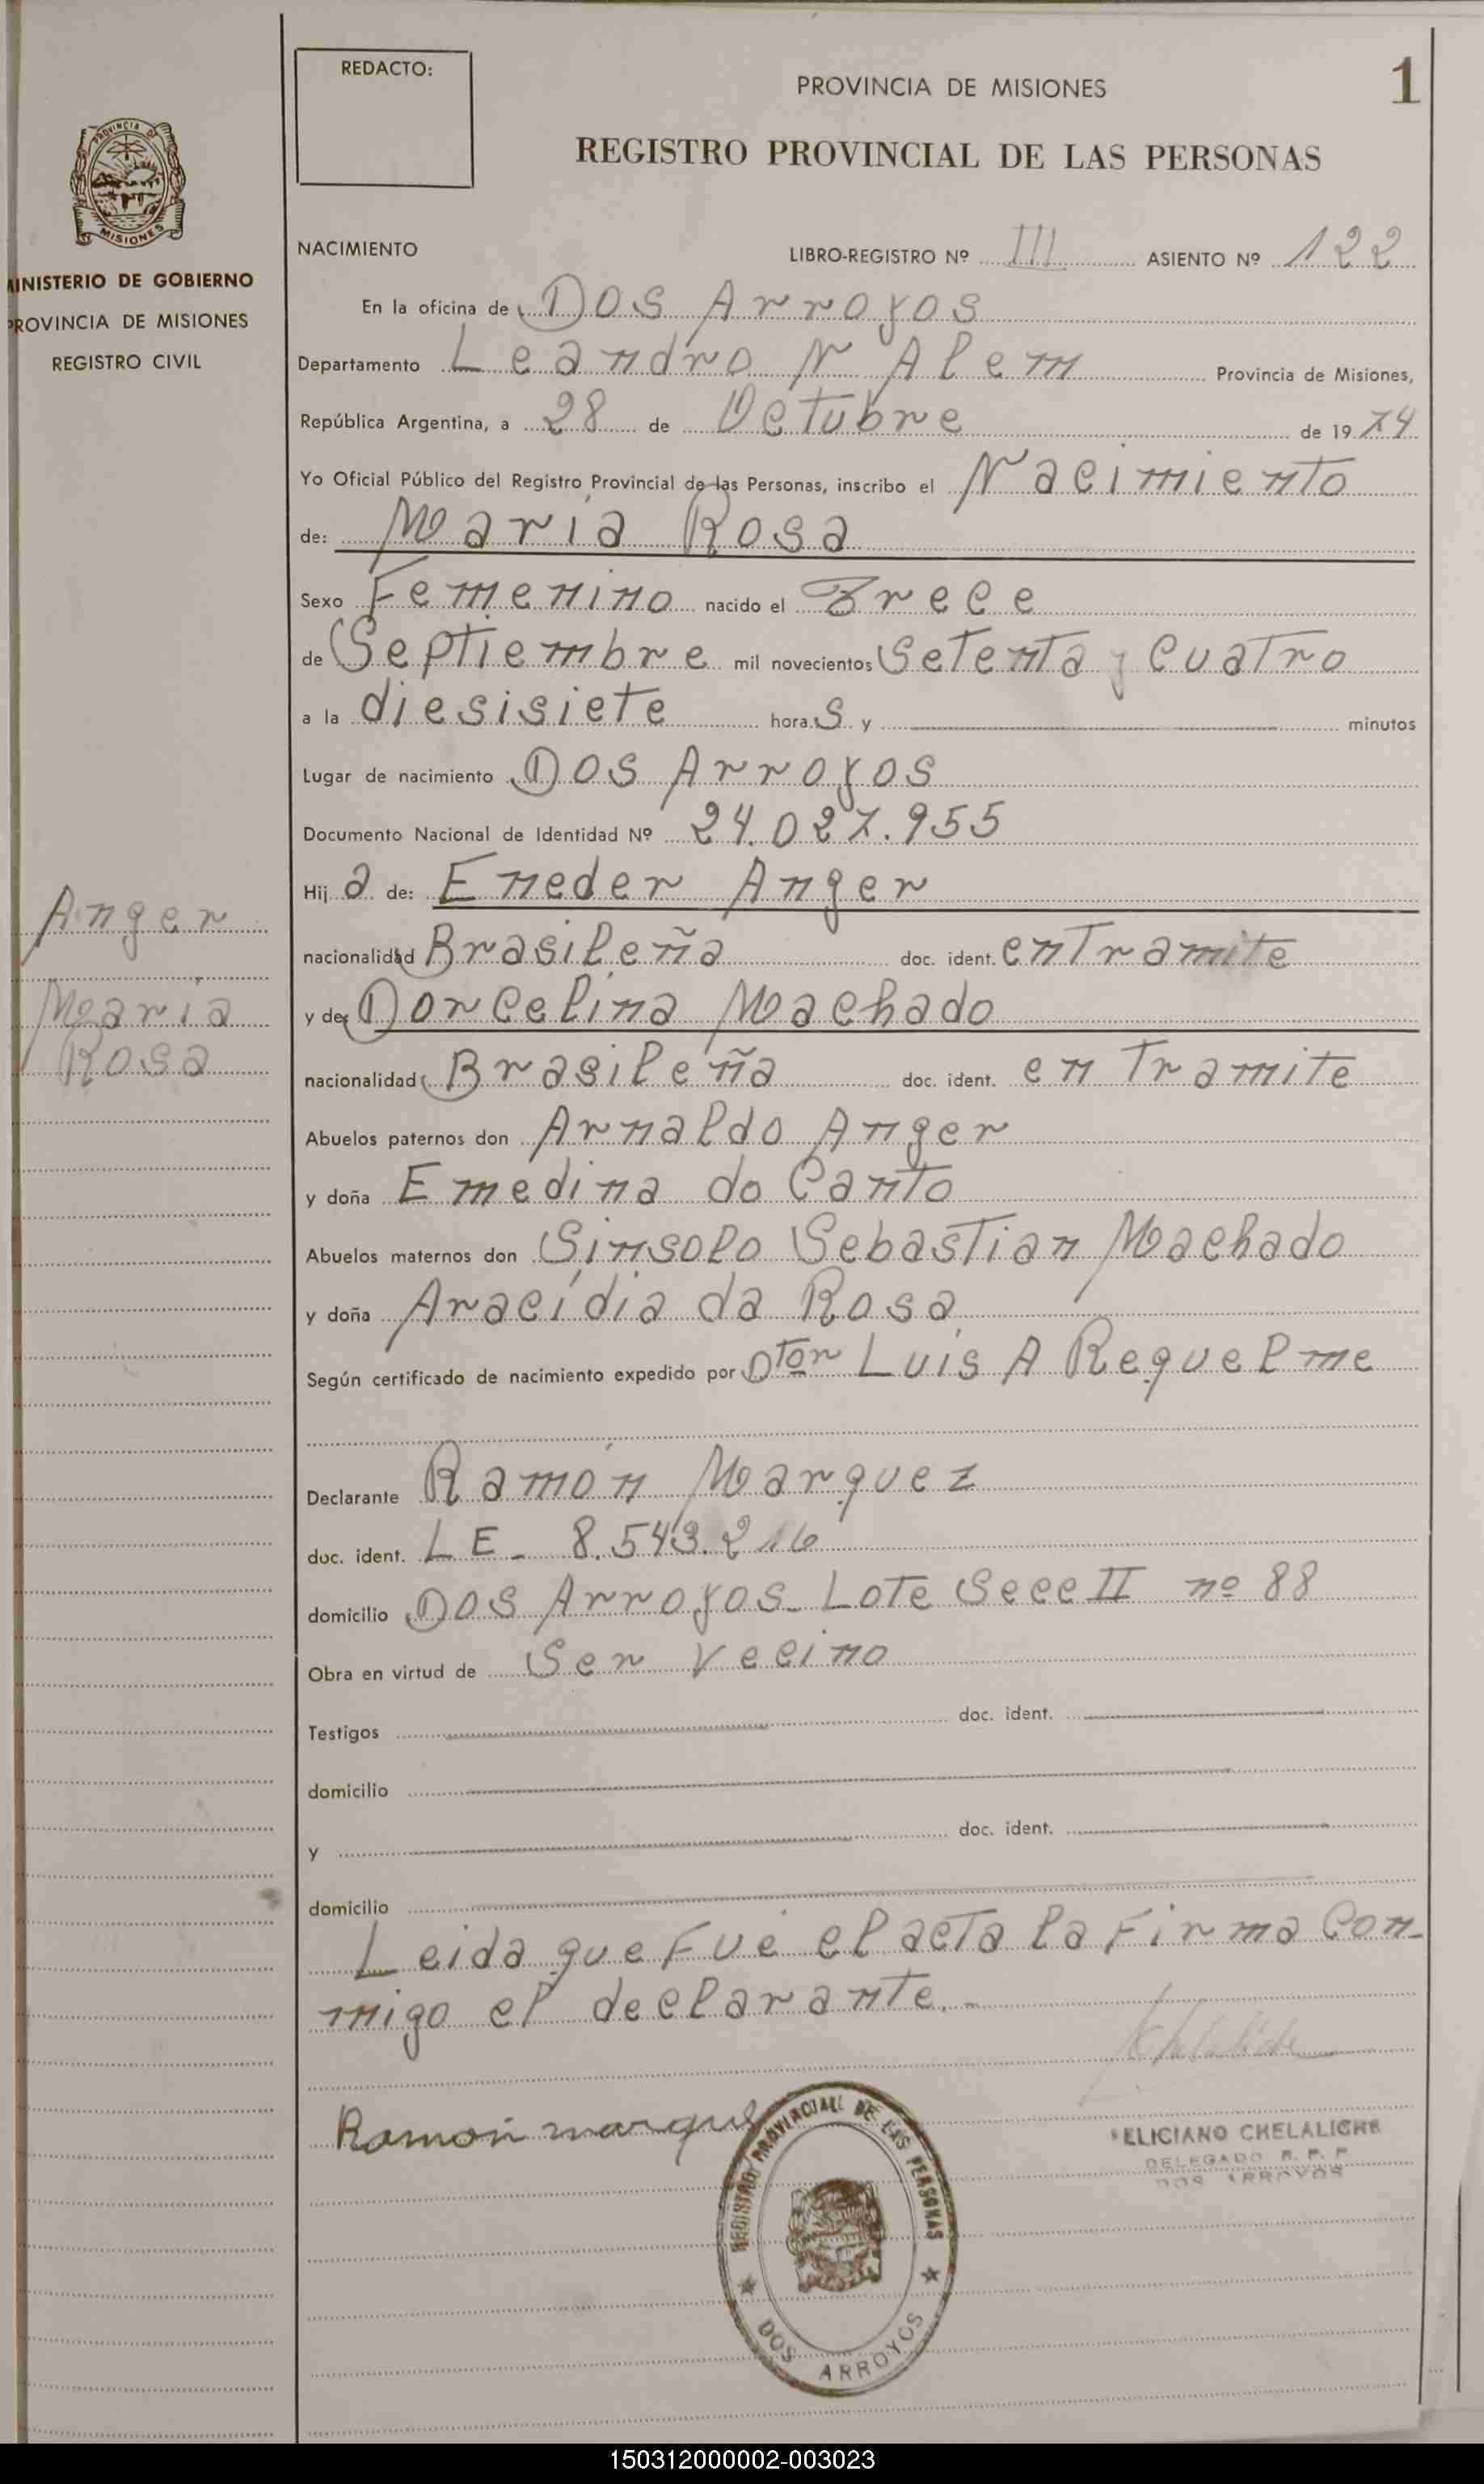 REDACTO:
PROVINCIA DE MISIONES
1
REGISTRO PROVINCIAL DE LAS PERSONAS
PROVINCIA DE
MISIONES
MINISTERIO DE GOBIERNO
PROVINCIA DE MISIONES
REGISTRO CIVIL
NACIMIENTO LIBRO-REGISTRO Nº III ASIENTO Nº 122
En la oficina de Dos Arroyos
Departamento Leandro N Alem Provincia de Misiones,
República Argentina, a 28 de Octubre de 1974
Yo Oficial Público del Registro Provincial de las Personas, inscribo el Nacimiento
de: María Rosa
Sexo Femenino nacido el Trece
de Septiembre mil novecientos Setenta y cuatro
a la diesisiete horas y minutos
Lugar de nacimiento Dos Arroyos
Documento Nacional de Identidad Nº 24.027.955
Hija de: Eneder Anger
Anger
nacionalidad Brasileña doc. ident. en Tramite
María
Rosa
y de: Dorcelina Machado
nacionalidad Brasileña doc. ident. en Tramite
Abuelos paternos don Arnaldo Anger
y doña Emedina do Canto
Abuelos maternos don Sinsolo Sebastian Machado
y doña Aracídia da Rosa
Según certificado de nacimiento expedido por Dtor Luis A Requelme
Declarante Ramón Marquez
doc. ident. LE - 8.543.216
domicilio Dos Arroyos - Lote Secc II nº 88
Obra en virtud de Ser Vecino
Testigos doc. ident.
domicilio
y doc. ident.
domicilio
Leida que fué el acta la Firma con-
migo el declarante.-
Ramon marque
REGISTRO PROVINCIAL DE LAS PERSONAS
DOS ARROYOS
FELICIANO CHELALICHE
DELEGADO R. P. P.
DOS ARROYOS
150312000002-003023